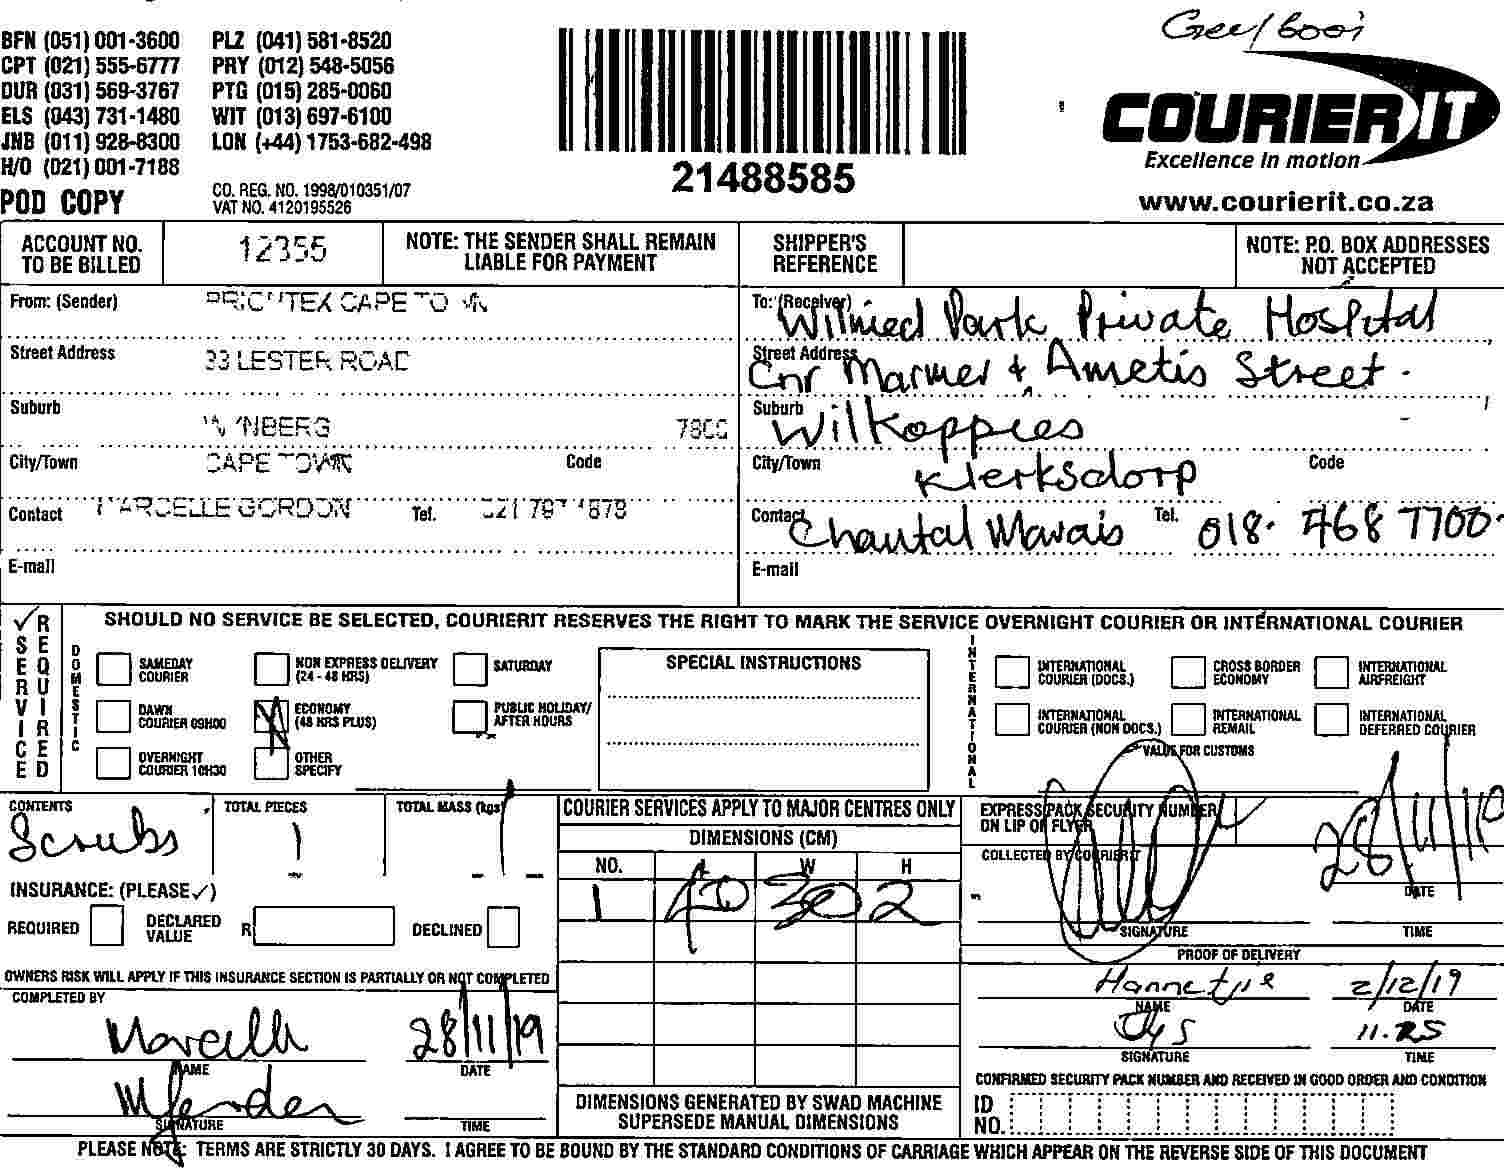 Geelbooi
BFN (051) 001-3600 PLZ (041) 581-8520
CPT (021) 555-6777 PRY (012) 548-5056
DUR (031) 569-3767 PTG (015) 285-0060
ELS (043) 731-1480 WIT (013) 697-6100
JNB (011) 928-8300 LON (+44) 1753-682-498
H/O (021) 001-7188
POD COPY
CO. REG. NO. 1998/010351/07
VAT NO. 4120195526
21488585
COURIER IT
Excellence in motion
www.courierit.co.za
ACCOUNT NO. TO BE BILLED 12355
NOTE: THE SENDER SHALL REMAIN LIABLE FOR PAYMENT
SHIPPER'S REFERENCE
NOTE: P.O. BOX ADDRESSES NOT ACCEPTED
From: (Sender) CAPE TOWN
Street Address 33 LESTER ROAD
Suburb WYNBERG 7800
City/Town CAPE TOWN Code
Contact MARCELLE GORDON Tel.
E-mail
To: (Receiver) Wilmed Park Private Hospital
Street Address Cnr Marmer & Ametis Street.
Suburb Wilkoppies
City/Town Klerksdorp Code
Contact Chantal Marais Tel. 018. 468 7700.
E-mail
SERVICE REQUIRED
SHOULD NO SERVICE BE SELECTED, COURIERIT RESERVES THE RIGHT TO MARK THE SERVICE OVERNIGHT COURIER OR INTERNATIONAL COURIER
DOMESTIC
SAMEDAY COURIER
NON EXPRESS DELIVERY (24 - 48 HRS)
SATURDAY
DAWN COURIER 09H00
ECONOMY (48 HRS PLUS)
PUBLIC HOLIDAY/ AFTER HOURS
OVERNIGHT COURIER 10H30
OTHER SPECIFY
SPECIAL INSTRUCTIONS
INTERNATIONAL
INTERNATIONAL COURIER (DOCS.)
CROSS BORDER ECONOMY
INTERNATIONAL AIRFREIGHT
INTERNATIONAL COURIER (NON DOCS.)
INTERNATIONAL REMAIL
INTERNATIONAL DEFERRED COURIER
VALUE FOR CUSTOMS
CONTENTS Scrubs
TOTAL PIECES 1
TOTAL MASS (kgs) 1
INSURANCE: (PLEASE ✓)
REQUIRED DECLARED VALUE R DECLINED
OWNERS RISK WILL APPLY IF THIS INSURANCE SECTION IS PARTIALLY OR NOT COMPLETED
COMPLETED BY
28/11/19
NAME DATE
SIGNATURE TIME
COURIER SERVICES APPLY TO MAJOR CENTRES ONLY
DIMENSIONS (CM)
NO. L W H
1 40 30 2
DIMENSIONS GENERATED BY SWAD MACHINE
SUPERSEDE MANUAL DIMENSIONS
EXPRESS PACK SECURITY NUMBER
ON LIP OF FLYER
COLLECTED BY COURIERIT
28/11/19
DATE
SIGNATURE TIME
PROOF OF DELIVERY
Hannetjie 2/12/19
NAME DATE
11.25
SIGNATURE TIME
CONFIRMED SECURITY PACK NUMBER AND RECEIVED IN GOOD ORDER AND CONDITION
ID NO.
PLEASE NOTE: TERMS ARE STRICTLY 30 DAYS. I AGREE TO BE BOUND BY THE STANDARD CONDITIONS OF CARRIAGE WHICH APPEAR ON THE REVERSE SIDE OF THIS DOCUMENT